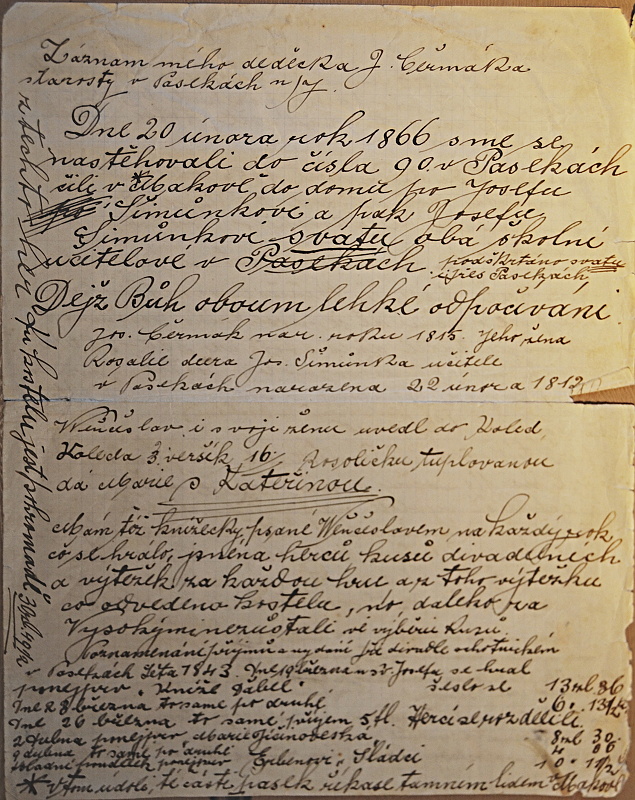 Záznam mého dědečka J. Čermáka
starosty v Pasekách n/J.
Dne 20 února rok 1866 sme se
nastěhovali do čísla 90 v Pasekách
čili v *Makově, do domu po Josefu
Šimůnkovi a pak Josefu
Šimůnkovi svatu obá školní
učitelove v Pasekách podškrtáno svatu
i přes Pasekách,
Dejž Bůh oboum lehké odpočívaní
Jos. Čermák nar. roku 1815. Jeho žena
Rosalie dcera Jos. Šimůnka učitele
v Pasekách narozena 22 února 1812
Věnceslav i svoji ženu uvedl do Koled,
Koleda 3. veršík 16. Rosoličku tuplovanou
dá Marie s Kateřinou.
Mám též knížečky, psané Věnceslavem, na každý rok
co se hrálo, jména herců kusů divadelních
a výtěžek za každou hru a z toho výtěžku
co odvedeno kostelu, no, daleko za
Vysokými nezůstali ve výběru kusů
Poznamenání příjmu a vydání při divadle ochotnickém
v Pasekách Léta 1843. Dne 19 března na sv. Josefa se hrál
ponejprv. Kníže Ďábel. sešlo se 13 86
Dne 28 března to samé po druhé 6.
Dne 26 března to samé příjem 5 fl. Herci se rozdělili
2 dubna ponejprv Marie 8 30
9 dubna to samé po druhé 4 06
ponejprv Erbenovi. Sládci 10
* V tom údolí, té části pasek říkase tamnem lidem Makově
z techto her Ku kostelu jest pohromadě